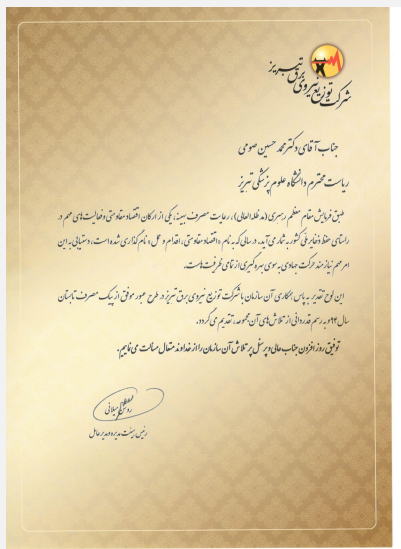 شرکت توزیع نیروی برق تبریز
جناب آقای دکتر محمد حسین صومی
ریاست محترم دانشگاه علوم پزشکی تبریز
طبق فرمایش مقام معظم رهبری (مد ظله العالی)، رعایت مصرف بهینه، یکی از ارکان اقتصاد مقاومتی و فعالیت های مهم در
راستای حفظ ذخایر ملی کشور به شمار می آید. در سالی که به نام «اقتصاد مقاومتی، اقدام و عمل» نام گذاری شده است، دستیابی به این
امر مهم نیازمند حرکت جهادی به سوی بهره گیری از تمامی ظرفیت هاست.
این لوح تقدیر به پاس همکاری آن سازمان با شرکت توزیع نیروی برق تبریز در طرح عبور موفق از پیک مصرف تابستان
سال ۹۴ و به رسم قدردانی از تلاش های آن مجموعه، تقدیم می گردد.
توفیق روز افزون جناب عالی و پرسنل پر تلاش آن سازمان را از خداوند متعال مسالت می نماییم.
رئیس هیئت مدیره و مدیر عامل